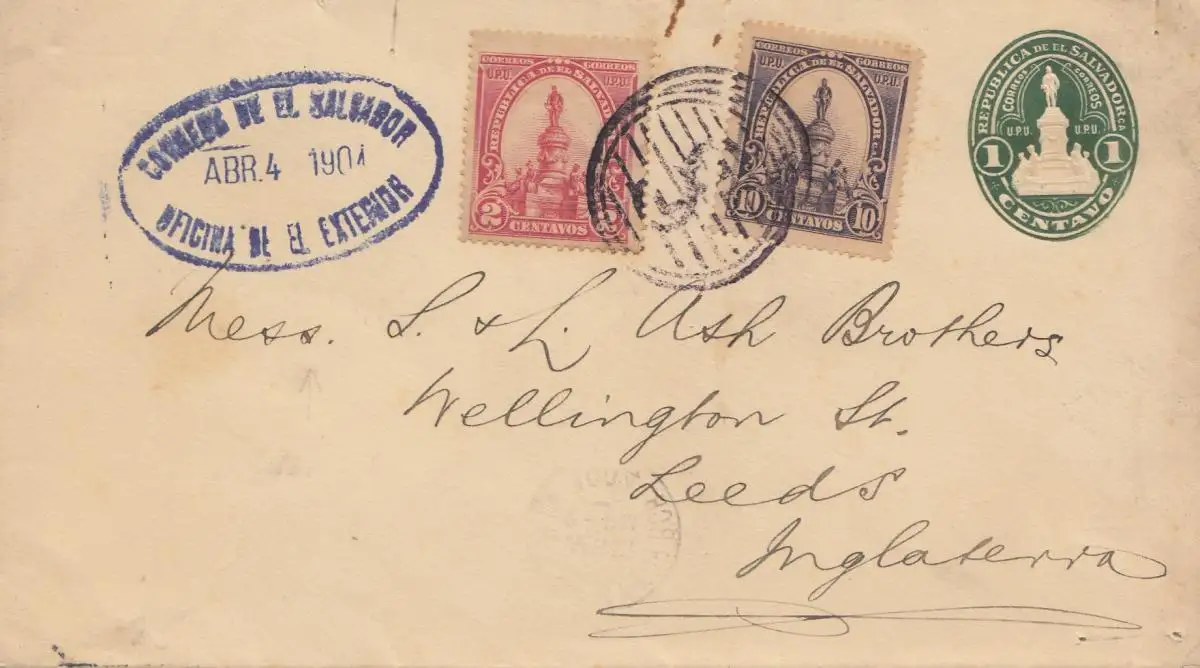 CORREOS DE EL SALVADOR
ABR. 4 1904
OFICINA DE EL EXTERIOR
CORREOS CORREOS
U.P.U. U.P.U.
REPUBLICA DE EL SALVADOR
2 2
CENTAVOS
CORREOS CORREOS
U.P.U. U.P.U.
REPUBLICA DE EL SALVADOR C.A.
10 10
CENTAVOS
REPUBLICA DE EL SALVADOR CA
CORREOS CORREOS
U.P.U. U.P.U.
1 1
CENTAVO
Mess. S. & L. Ash Brothers
Wellington St.
Leeds
Inglaterra